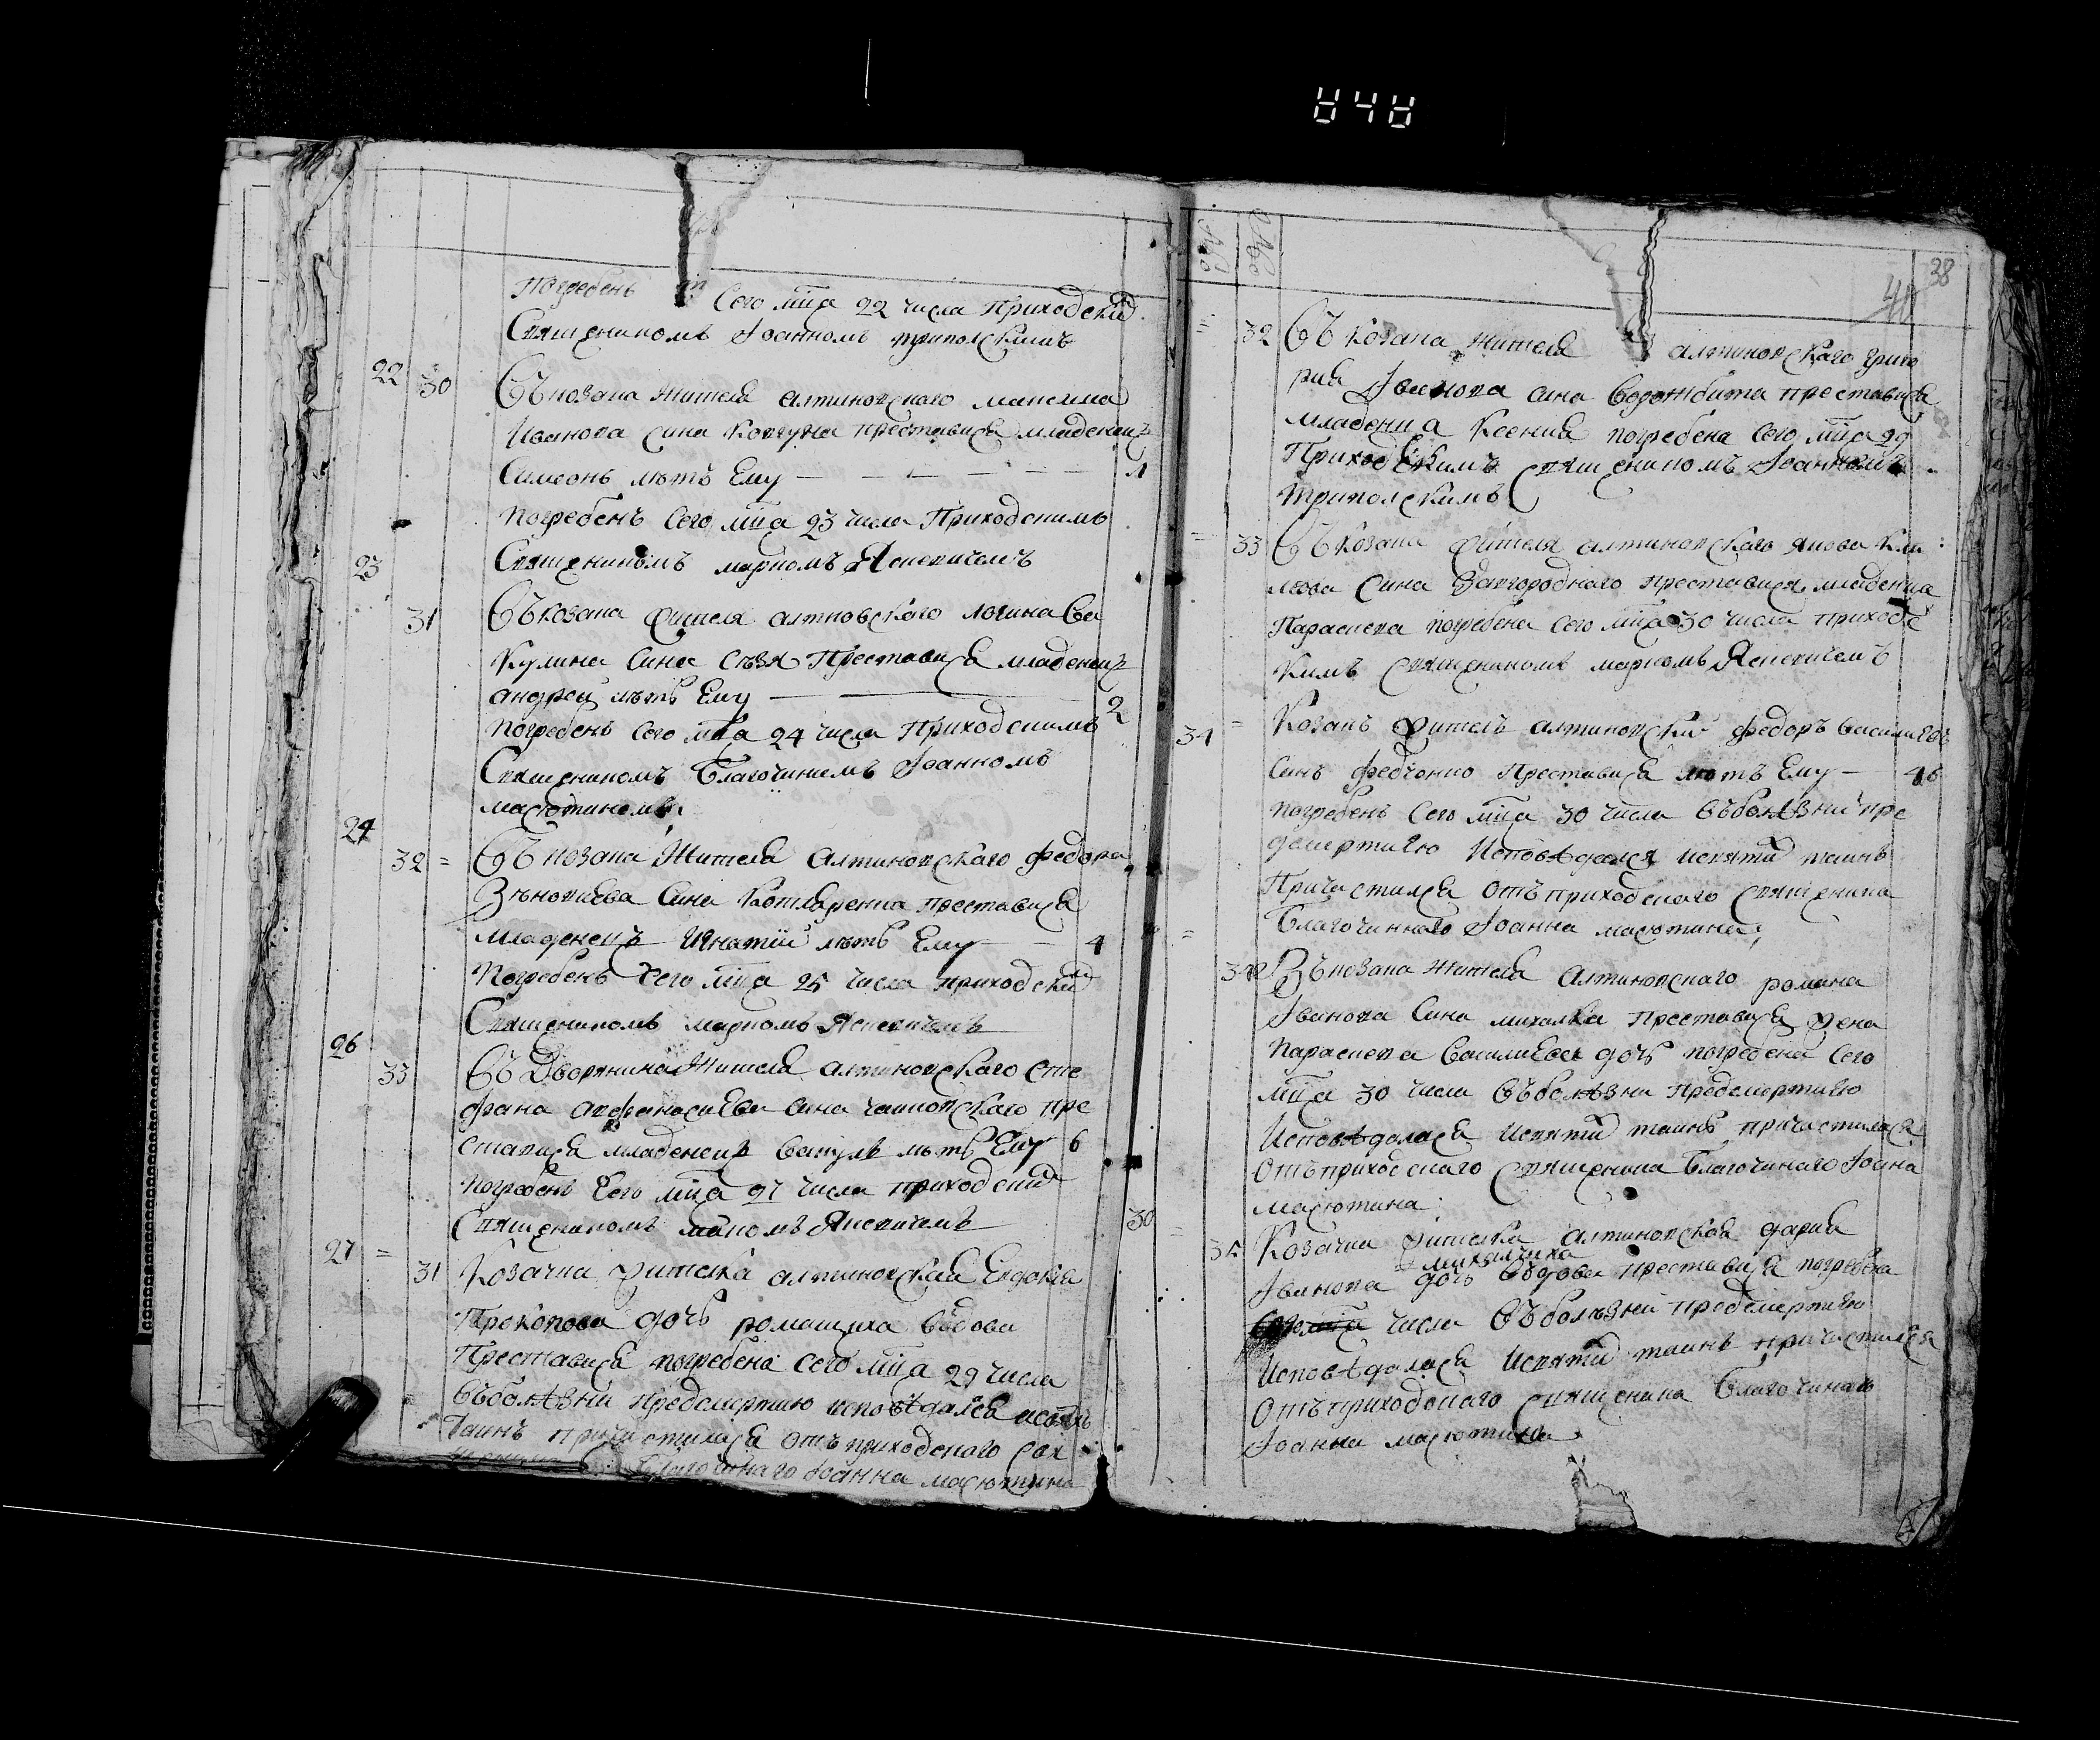 Погребенъ Сего мца 22 числа Приходским
Священикомъ Іоанномъ триполскимъ
22 30 Съ козака жителя алтиновского максима
Иванова сина Ковтуна преставися младенецъ
Симеонъ лѣтъ Ему — — — — 1
погребенъ Сего мца 23 числа Приходскимъ
23 Священикомъ маркомъ Ясневичемъ
31 Съ козака жителя алтновского логина
Кулика сина преставися младенецъ
андрей лѣтъ Ему — — 2
погребенъ Сего мца 24 числа Приходскимъ
Священикомъ Благочинимъ Іоанномъ
масютиномъ
24
32 = Съ козака Жителя Алтиновского федора
Зѣновиева Сина Котляренка преставися
Младенецъ Игнатій лѣтъ Ему — 4
Погребенъ Сего мца 25 числа приходским
Священикомъ маркомъ Ясневичемъ
26
33 Съ Дворянина Жителя алтиновского сте
фана афанасиева сина пре
ставися младенецъ лѣтъ Ему 6
погребенъ Сего мца 27 числа приходским
Священикомъ Ясневичемъ
27 =
31 Козачка жителка алтиновская Евдокия
Прокопова дочъ ромащиха вдова
Преставися погребена сего мца 29 числа
Съболѣзни предсмертию исповѣдалася
Таинъ причистилася отъ приходского свя
Благочинаго Іоанна масютина
28
40
= 32 Съ козака жителя алтиновского григо
рия Іванова сина преставися
младенца Ксения погребена Сего мца 29
Приходскимъ Священикомъ Іоанномъ
триполскимъ
= 33 Съ козака жителя алтиновского якова Кли
мова Сина Завгородного преставися младенца
Параскева погребена Сего мца 30 числа приходс
кимъ священикомъ маркомъ Ясневичемъ
34 = Козакъ житель алтиновский федоръ василиевъ
синъ федченко Преставися лѣтъ Ему — 46
погребенъ Сего мца 30 числа Съболѣзни пре
дсмертию Исповѣдался исвятих таинъ
Причистился отъ приходского Священика
Благочинного Іоанна масютина
= 34 Зъ козака жителя Алтиновского романа
Іванова Сина михалка Преставися жена
параскева Василиева дочъ погребена Сего
мца 30 числа Съболѣзни Предсмертию
Исповѣдалася Исвятих таинъ причистилася
Отъ приходского Священика Благочинаго Іоана
масютина
30 =
35 Козачка жителка алтиновская дария
михалчиха
Іванова дочъ Вдова преставися погребена
Сего мца числа Съболѣзни предсмертию
Исповѣдалася Исвятих таинъ причистилася
Отъ приходского священика Благочинаго
Іоанна масютина